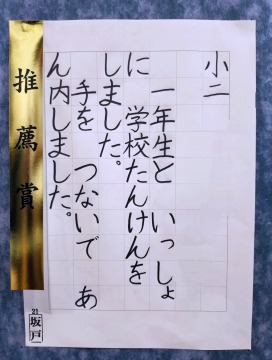 小二
一年生と いっしょ
に 学校たんけんを
しました。
手を つないで あ
ん内しました。
推薦賞
21
坂戸